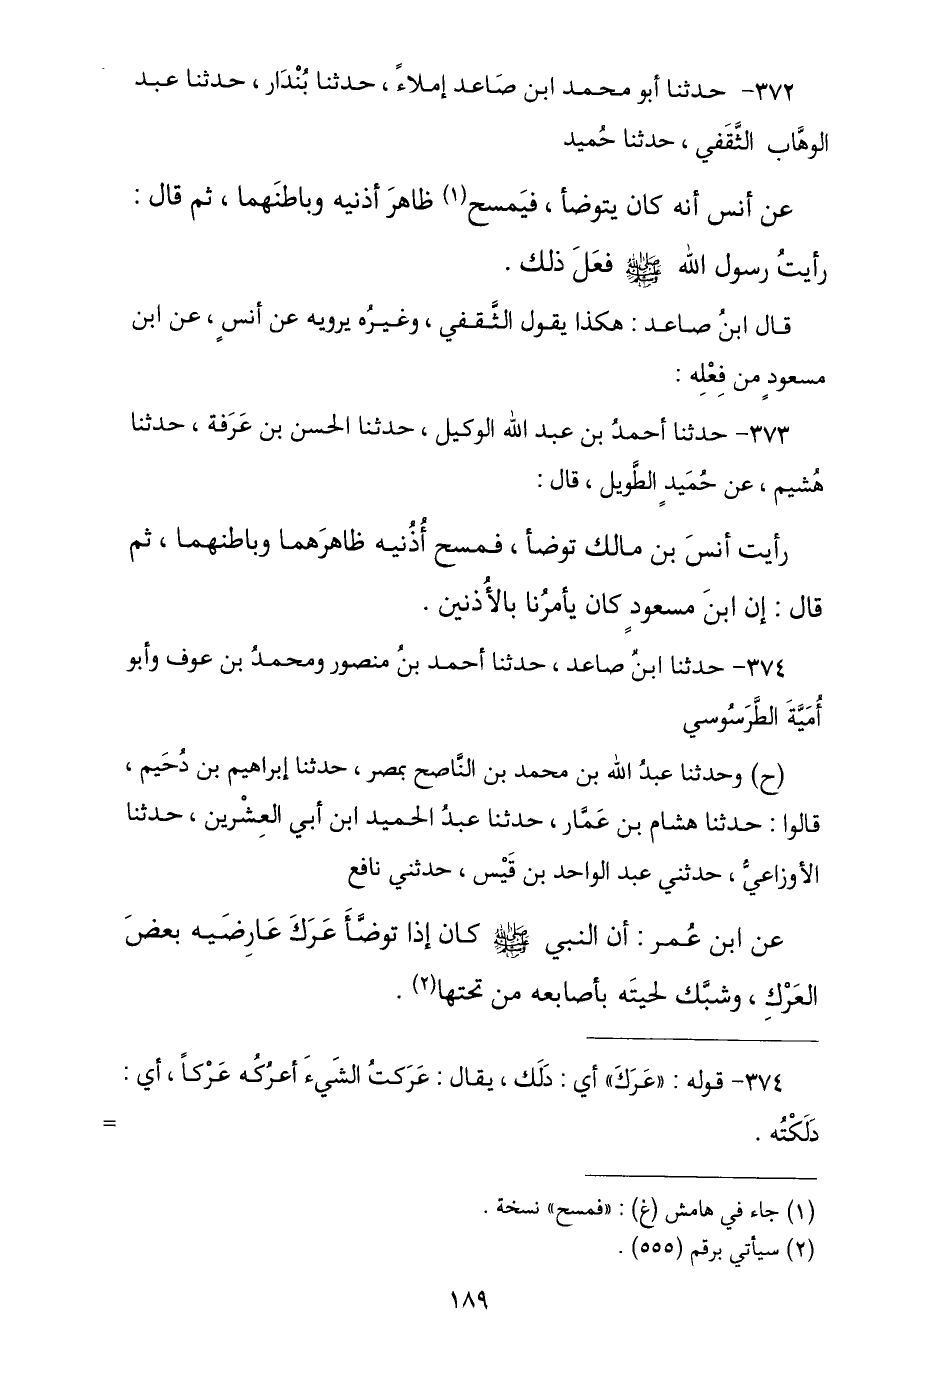 ٣٧٢- حدثنا أبو محمد ابن صَاعد إملاءً ، حدثنا بُنْدَار ، حدثنا عبد
الوهَّاب الثَّقَفي ، حدثنا حُميد
عن أنس أنه كان يتوضأ ، فيَمسح(١) ظاهرَ أذنيه وباطنَهما ، ثم قال :
رأيتُ رسول الله ﷺ فعَلَ ذلك .
قال ابنُ صاعد : هكذا يقول الثَّقفي ، وغيرُه يرويه عن أنسٍ ، عن ابن
مسعودٍ من فِعْلِه :
٣٧٣- حدثنا أحمدُ بن عبد الله الوكيل ، حدثنا الحسن بن عَرَفة ، حدثنا
هُشيم ، عن حُمَيدٍ الطَّويل ، قال :
رأيت أنسَ بن مالك توضأ ، فمسح أُذُنيه ظاهرَهما وباطنهما ، ثم
قال : إن ابنَ مسعودٍ كان يأمرُنا بالأُذنين .
٣٧٤- حدثنا ابنُ صاعد ، حدثنا أحمد بنُ منصور ومحمدُ بن عوف وأبو
أُمَيَّةَ الطَّرَسُوسي
(ح) وحدثنا عبدُ الله بن محمد بن النَّاصح بمصر ، حدثنا إبراهيم بن دُحَيم ،
قالوا : حدثنا هشام بن عَمَّار ، حدثنا عبدُ الحميد ابن أبي العِشْرين ، حدثنا
الأوزاعيُّ ، حدثني عبد الواحد بن قَيْس ، حدثني نافع
عن ابن عُمر : أن النبي ﷺ كان إذا توضَّأَ عَرَكَ عَارِضَيه بعضَ
العَرْكِ ، وشبَّك لحيتَه بأصابعه من تحتها(٢) .
٣٧٤- قوله : «عَرَكَ» أي : دَلَك ، يقال : عَرَكتُ الشَيءَ أعرُكُه عَرْكاً ، أي :
دَلَكْتُه .
=
(١) جاء في هامش (غ) : «فمسح» نسخة .
(٢) سيأتي برقم (٥٥٥) .
١٨٩